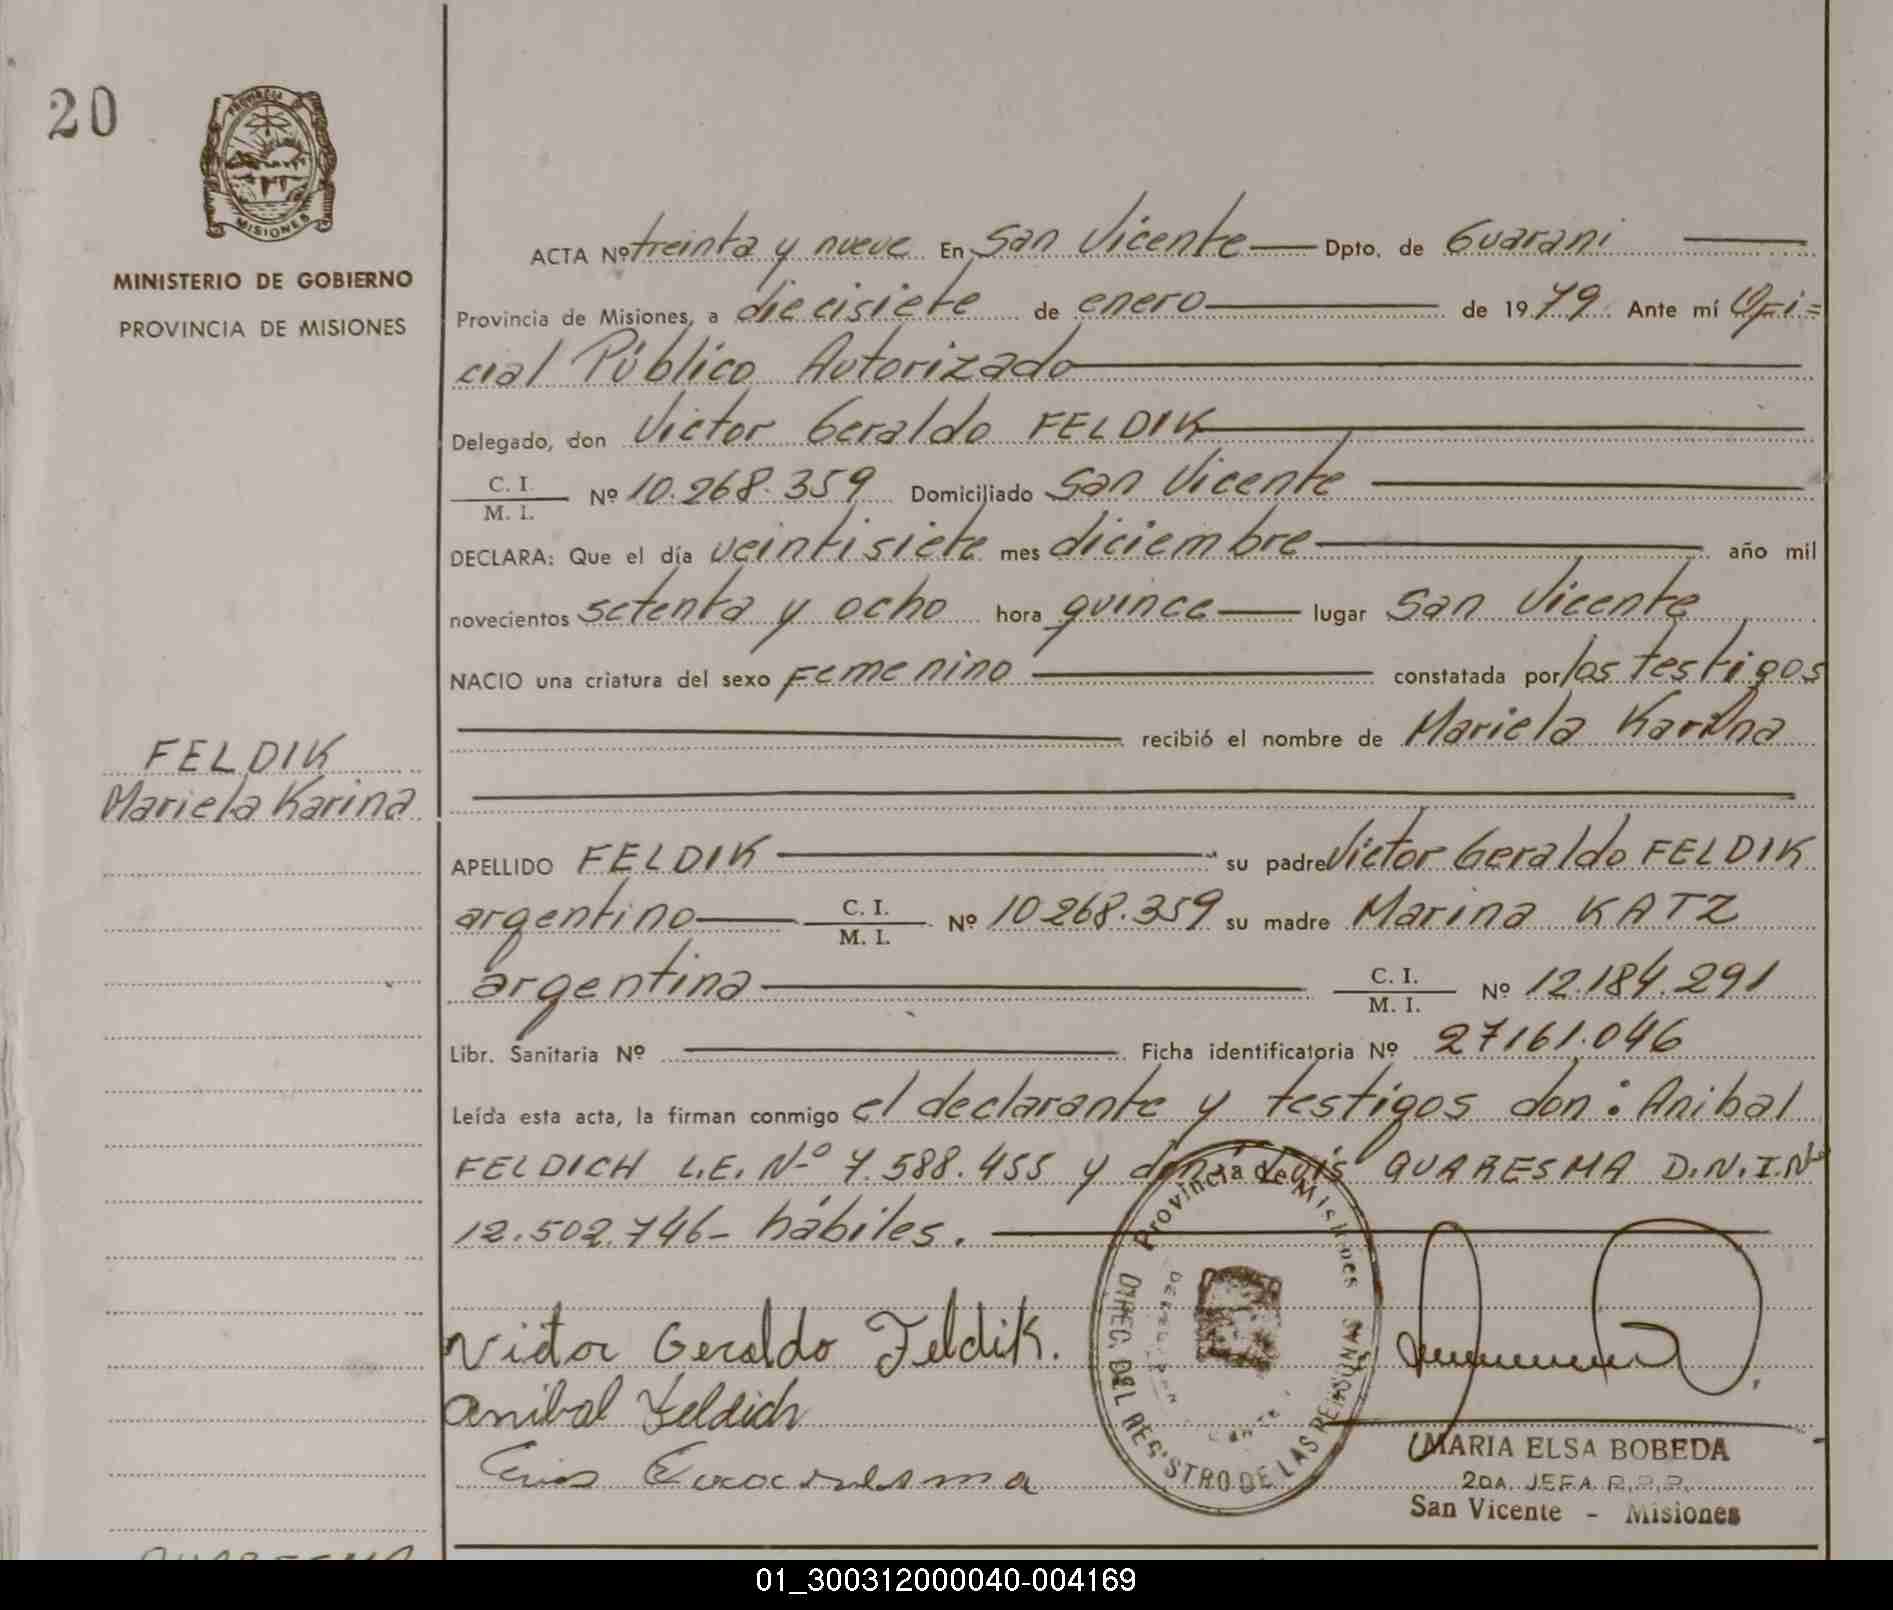 20
PROVINCIA D
MISIONES
MINISTERIO DE GOBIERNO
PROVINCIA DE MISIONES
FELDIK
Mariela Karina
ACTA Nº treinta y nueve En San Vicente Dpto. de Guarani
Provincia de Misiones, a diecisiete de enero de 1979. Ante mí Ofi=
cial Público Autorizado
Delegado, don Victor Geraldo FELDIK
C. I.
M. I.
Nº 10.268.359 Domiciliado San Vicente
DECLARA: Que el día veintisiete mes diciembre año mil
novecientos setenta y ocho hora quince lugar San Vicente
NACIO una criatura del sexo Femenino constatada por los testigos
recibió el nombre de Mariela Karina
APELLIDO FELDIK su padre Victor Geraldo FELDIK
argentino C. I.
M. I.
Nº 10268.359 su madre Marina KATZ
argentina C. I.
M. I.
Nº 12.184.291
Libr. Sanitaria Nº Ficha identificatoria Nº 27161.046
Leída esta acta, la firman conmigo el declarante y testigos don: Anibal
FELDICH L.E. Nº 7.588.455 y don: Luis QUARESMA D.N.I.Nº
12.502.746- hábiles.
Provincia de Misiones
DIREC. DEL REGISTRO DE LAS PERSONAS
Victor Geraldo Feldik.
Anibal Feldich
MARIA ELSA BOBEDA
2DA. JEFA R.P.P.
San Vicente - Misiones
01_300312000040-004169